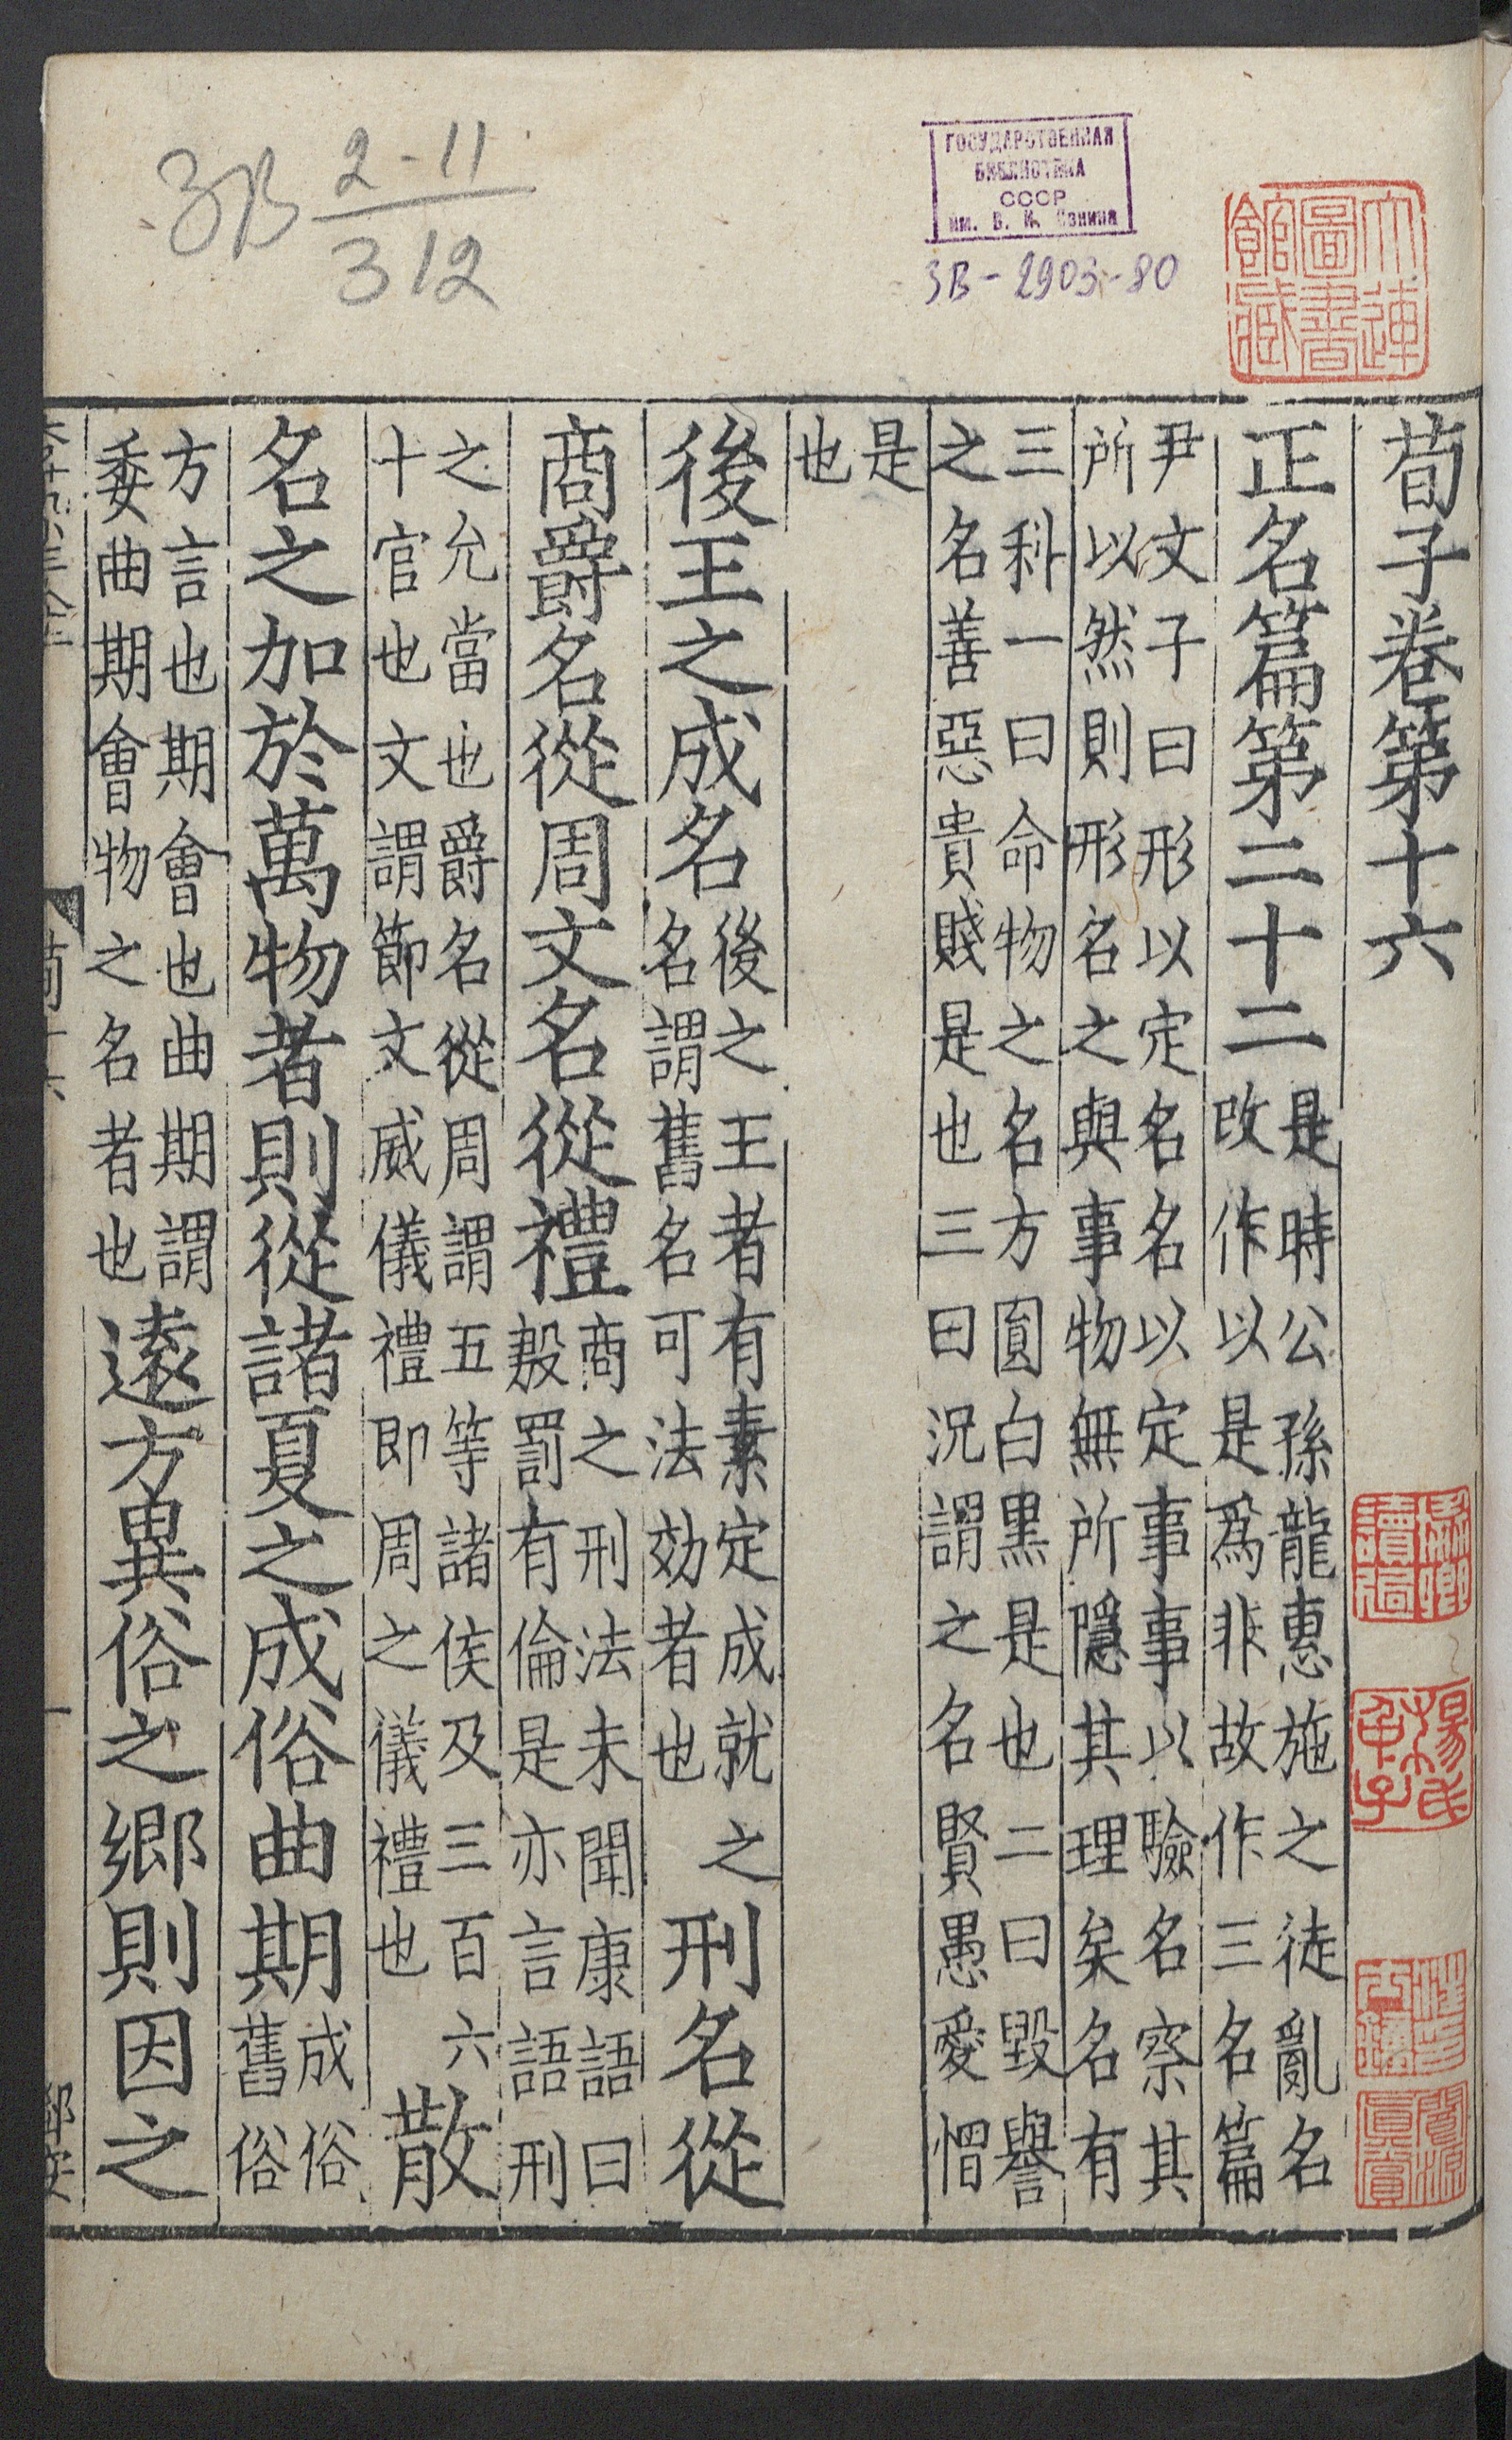 3В 2-11
312
ГОСУДАРСТВЕННАЯ
БИБЛИОТЕКА
СССР
им. В. И. Ленина
3В-2903-80
大連
圖書
館藏
荀子卷第十六
正名篇第二十二
是時公孫龍惠施之徒亂名
改作以是爲非故作三名篇
尹文子曰形以定名名以定事事以驗名察其
所以然則形名之與事物無所隱其理矣名有
三科一曰命物之名方圓白黑是也二曰毀譽
之名善惡貴賤是也三曰況謂之名賢愚愛憎
是
也
後王之成名
後之王者有素定成就之
名謂舊名可法効者也
刑名從
商爵名從周文名從禮
商之刑法未聞康語曰
殷罰有倫是亦言語刑
之允當也爵名從周謂五等諸侯及三百六
十官也文謂節文威儀禮即周之儀禮也
散
名之加於萬物者則從諸夏之成俗曲期
成俗
舊俗
方言也期會也曲期謂
委曲期會物之名者也
遠方異俗之鄉則因之
楊氏
荀十六
一